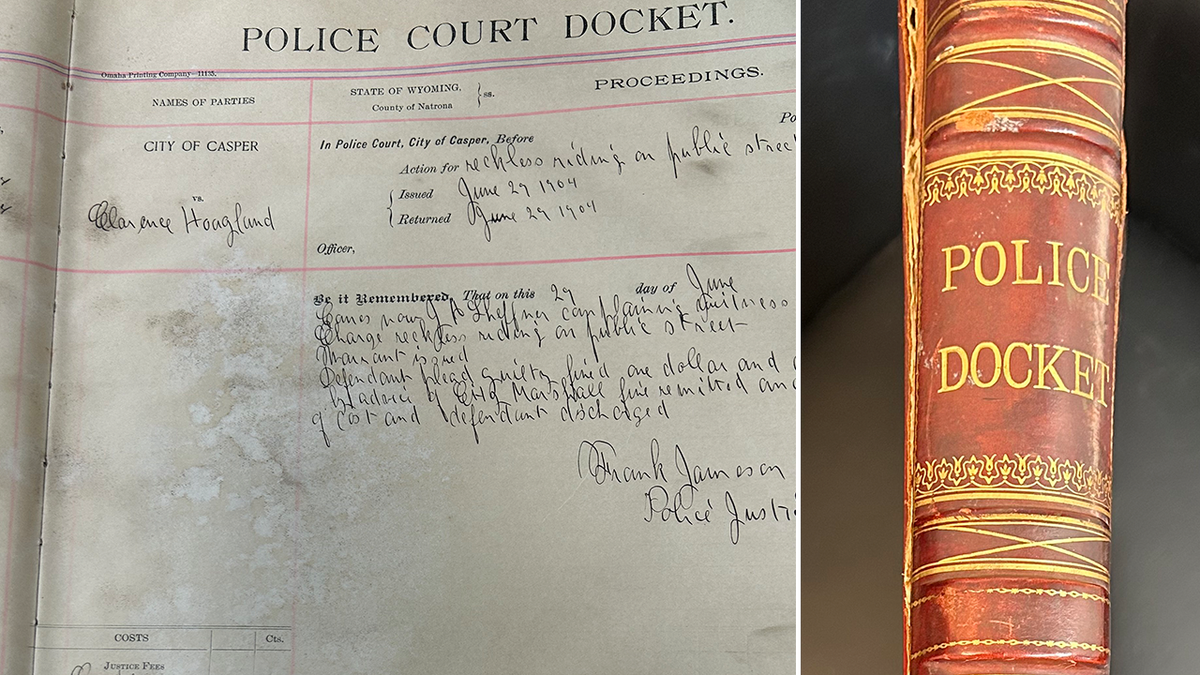 POLICE COURT DOCKET.
Omaha Printing Company—11135.
NAMES OF PARTIES
STATE OF WYOMING,
County of Natrona
ss.
PROCEEDINGS.
CITY OF CASPER
vs.
Clarence Hoagland
Po
In Police Court, City of Casper, Before
Action for reckless riding on public street
Issued June 29 1904
Returned June 29 1904
Officer,
Be it Remembered, That on this 29 day of June
Comes now J A Sheffner complaining witness
Charge reckless riding on public street
Warrant issued
Defendant plead guilty fined one dollar and
by advice of City Marshall fine remitted and
of cost and defendant discharged
Frank Jameson
Police Justi
COSTS
Cts.
JUSTICE FEES
POLICE
DOCKET